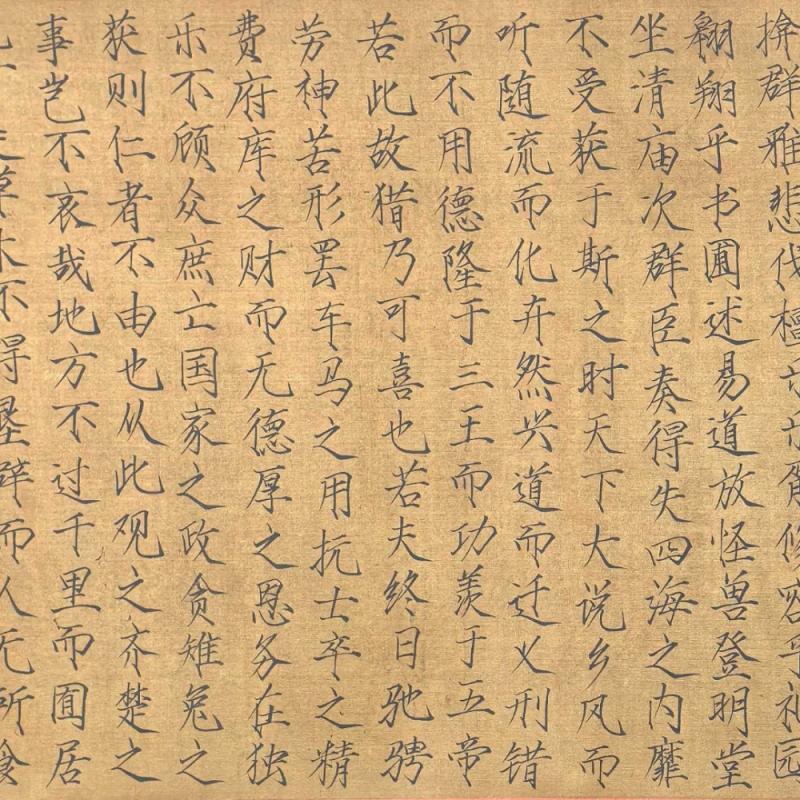 揜群雅悲伐檀乐乐胥修容乎礼园
翱翔乎书圃述易道放怪兽登明堂
坐清庙次群臣奏得失四海之内靡
不受获于斯之时天下大说乡风而
听随流而化卉然兴道而迁义刑错
而不用德隆于三王而功羡于五帝
若此故猎乃可喜也若夫终日驰骋
劳神苦形罢车马之用抗士卒之精
费府库之财而无德厚之恩务在独
乐不顾众庶亡国家之政贪雉兔之
获则仁者不由也从此观之齐楚之
事岂不哀哉地方不过千里而囿居
草木不得垦辟而人无所食